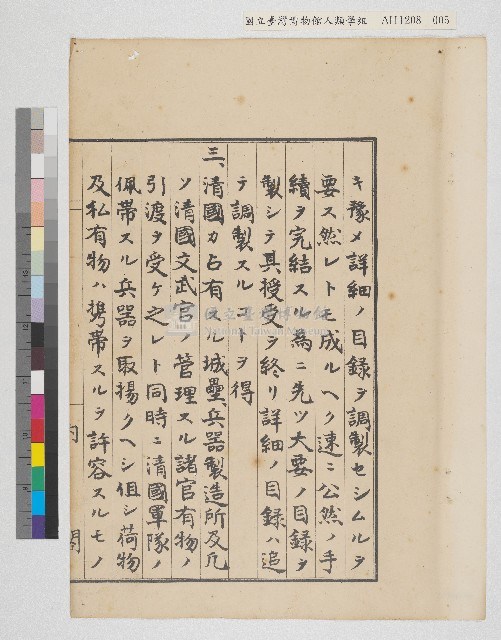 國立臺灣博物館人類學組 AH1208 005
キ豫メ詳細ノ目録ヲ調製セシムルヲ
要ス然レトモ成ルヘク速ニ公然ノ手
續ヲ完結スル為ニ先ツ大要ノ目録ヲ
製シテ具授受ヲ終リ詳細ノ目録ハ追
テ調製スルコトヲ得
三、清國カ占有スル城壘、兵器製造所及凡
ソ清國文武官ノ管理スル諸官有物ノ
引渡ヲ受ケ之レト同時ニ清國軍隊ノ
佩帶スル兵器ヲ取揚クヘシ但シ荷物
及私有物ハ携帶スルヲ許容スルモノ
內閣
國立臺灣博物館
National Taiwan Museum